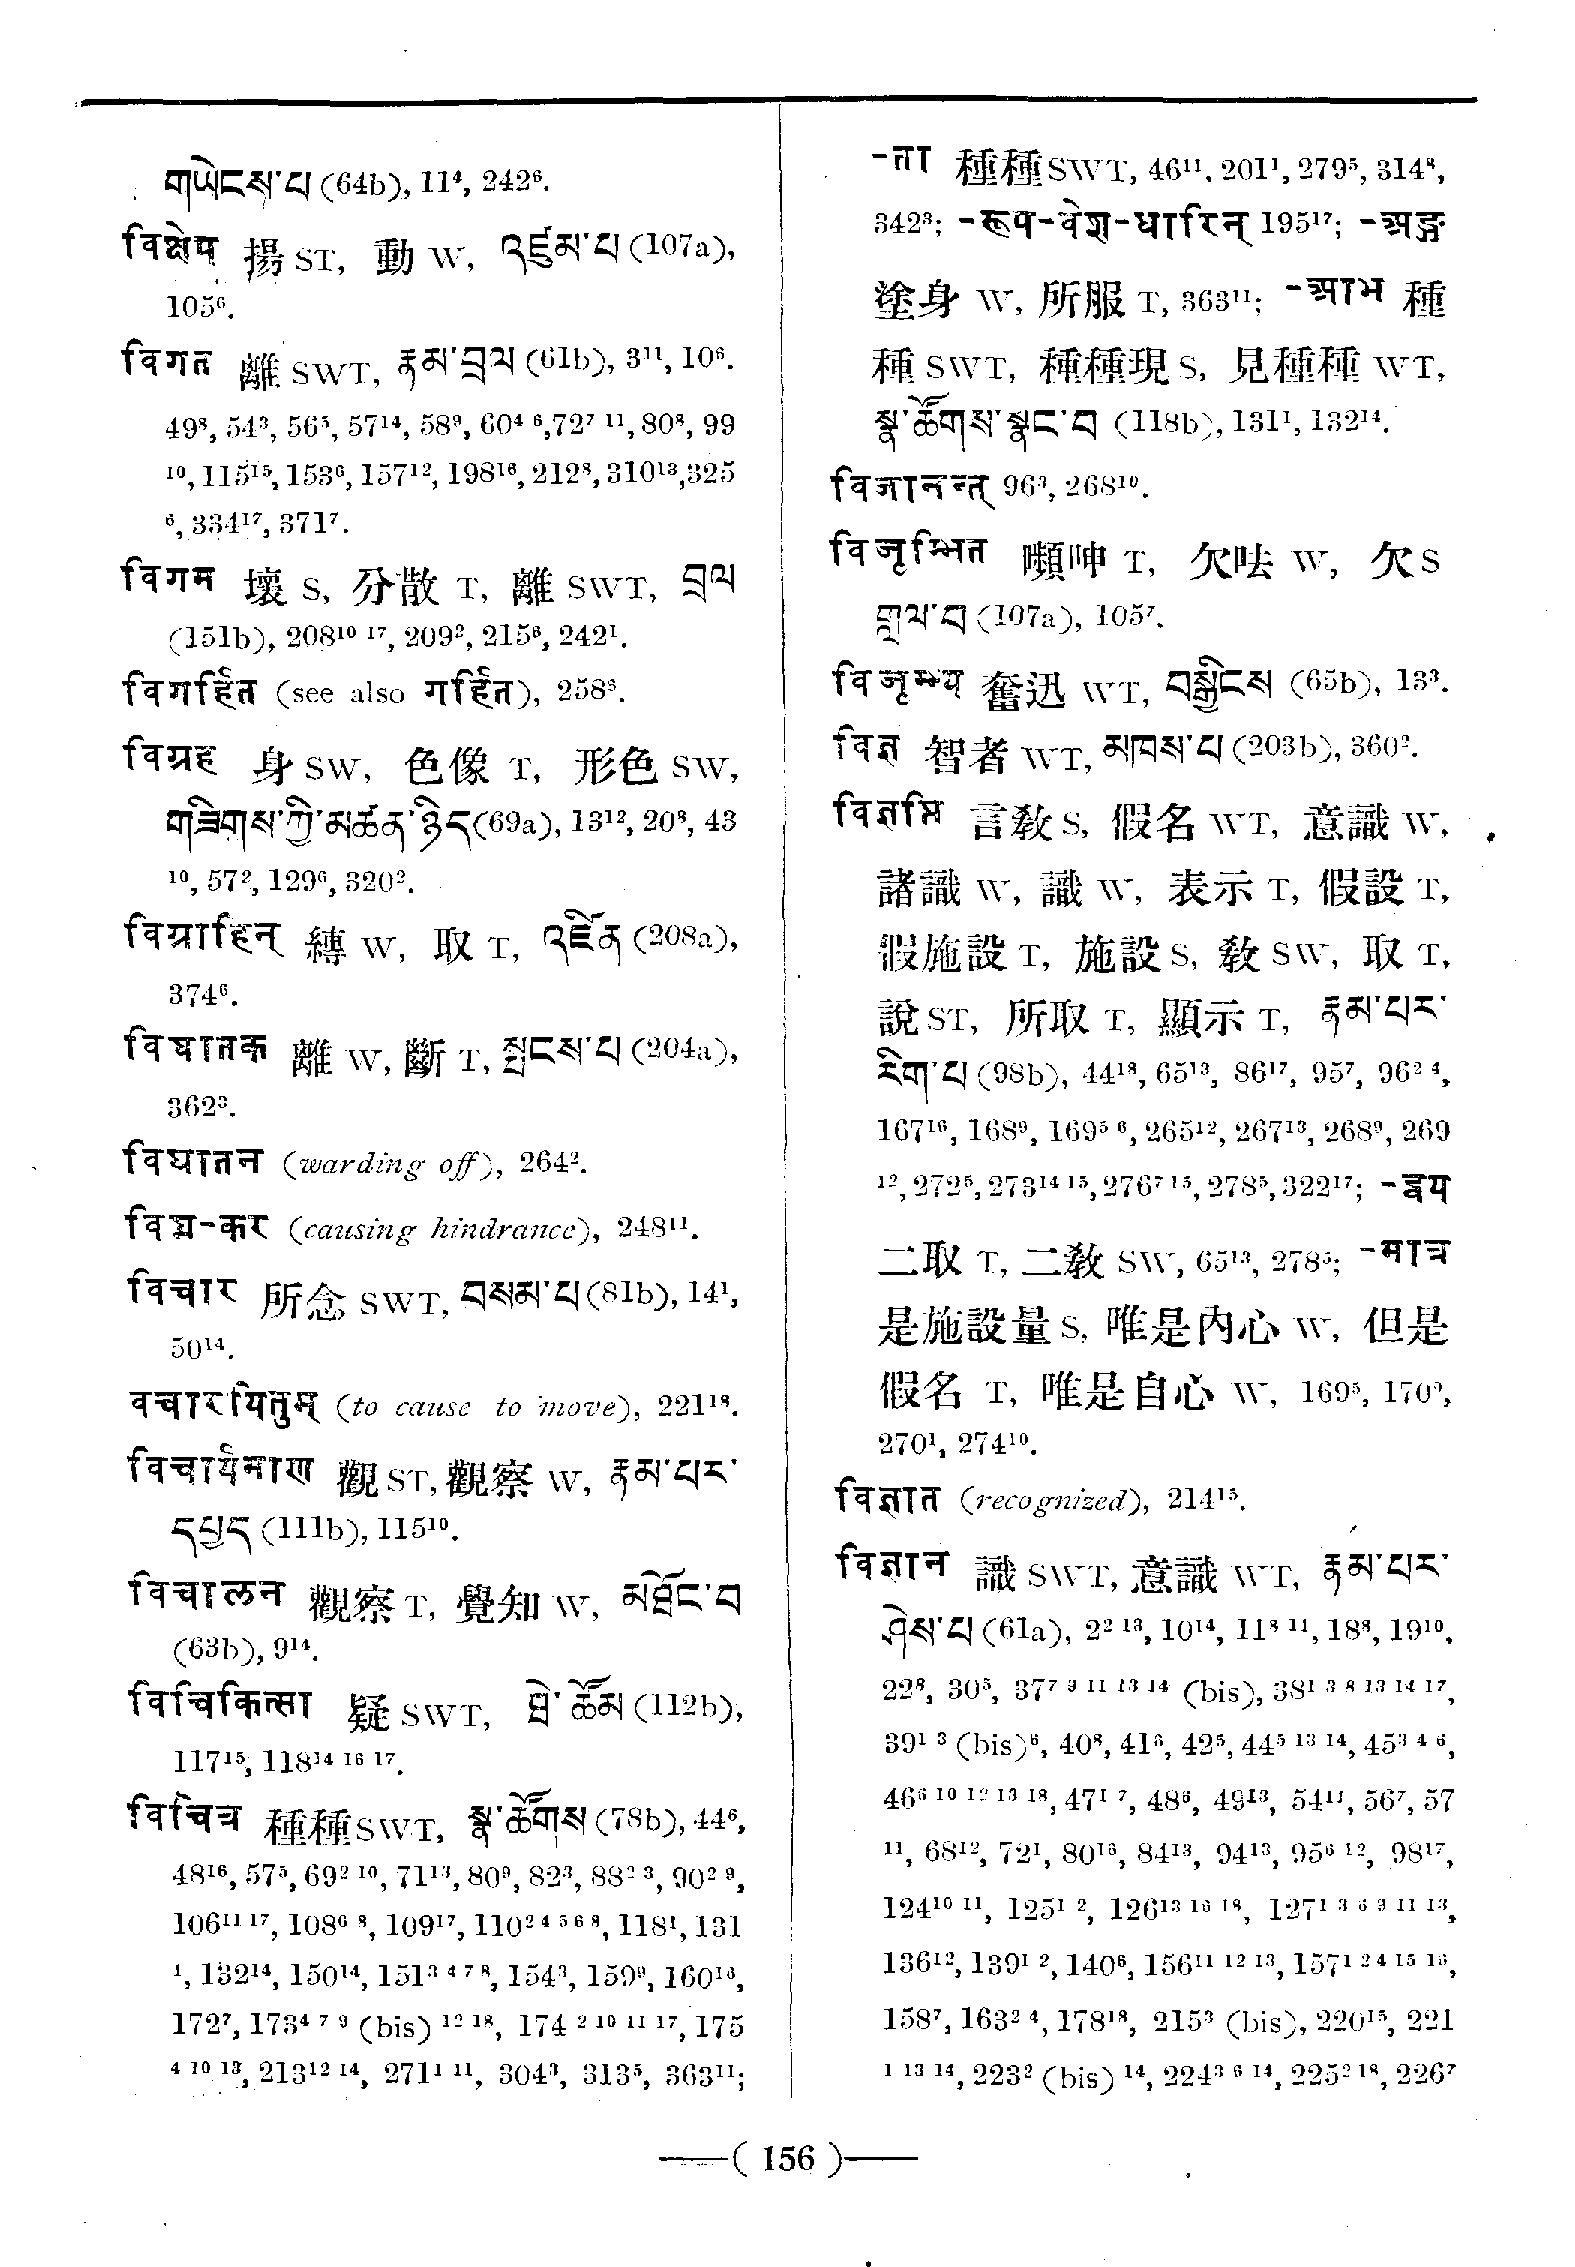 གཡེངས་པ (64b), 11⁴, 242⁶.
विक्षेप 揚 ST, 動 W, འཛུམ་པ (107a),
105⁶.
विगत 離 SWT, རྣམ་བྲལ (61b), 3¹¹, 10⁶.
49⁸, 54³, 56⁵, 57¹⁴, 58⁹, 60⁴ ⁶, 72⁷ ¹¹, 80⁸, 99
¹⁰, 115¹⁵, 153⁶, 157¹², 198¹⁶, 212⁸, 310¹³, 325
⁶, 334¹⁷, 371⁷.
विगम 壞 S, 分散 T, 離 SWT, བྲལ
(151b), 208¹⁰ ¹⁷, 209², 215⁶, 242¹.
विगर्हित (see also गर्हित), 258⁸.
विग्रह 身 SW, 色像 T, 形色 SW,
གཟིགས་ཀྱི་མཚན་ཉིད (69a), 13¹², 20⁸, 43
¹⁰, 57², 129⁶, 320².
विग्राहिन् 縛 W, 取 T, འཛིན (208a),
374⁶.
विघातक 離 W, 斷 T, སྤངས་པ (204a),
362³.
विघातन (warding off), 264².
विघ्न-कर (causing hindrance), 248¹¹.
विचार 所念 SWT, བསམ་པ (81b), 14¹,
50¹⁴.
वचारयितुम् (to cause to move), 221¹⁸.
विचार्यमाण 觀 ST, 觀察 W, རྣམ་པར་
དཔྱད (111b), 115¹⁰.
विचालन 觀察 T, 覺知 W, མཐོང་བ
(63b), 9¹⁴.
विचिकित्सा 疑 SWT, ཐེ་ཚོམ (112b),
117¹⁵, 118¹⁴ ¹⁶ ¹⁷.
विचित्र 種種 SWT, སྣ་ཚོགས (78b), 44⁶,
48¹⁶, 57⁵, 69² ¹⁰, 71¹³, 80⁹, 82³, 88² ³, 90² ⁹,
106¹¹ ¹⁷, 108⁶ ⁸, 109¹⁷, 110² ⁴ ⁵ ⁶ ⁸, 118¹, 131
¹, 132¹⁴, 150¹⁴, 151³ ⁴ ⁷ ⁸, 154³, 159⁹, 160¹⁶,
172⁷, 173⁴ ⁷ ⁹ (bis) ¹² ¹⁸, 174 ² ¹⁰ ¹¹ ¹⁷, 175
⁴ ¹⁰ ¹³, 213¹² ¹⁴, 271¹ ¹¹, 304³, 313⁵, 363¹¹;
-ता 種種 SWT, 46¹¹, 201¹, 279⁵, 314⁸,
342³; -रूप-वेश-धारिन् 195¹⁷; -अङ्ग
塗身 W, 所服 T, 363¹¹; -आभ 種
種 SWT, 種種現 S, 見種種 WT,
སྣ་ཚོགས་སྣང་བ (118b), 131¹, 132¹⁴.
विजानन्त् 96³, 268¹⁰.
विजृम्भित 嚬呻 T, 欠呿 W, 欠 S
གླལ་བ (107a), 105⁷.
विजृम्भ्य 奮迅 WT, བསྒྱིངས (65b), 13³.
विज्ञ 智者 WT, མཁས་པ (203b), 360².
विज्ञप्ति 言教 S, 假名 WT, 意識 W,
諸識 W, 識 W, 表示 T, 假設 T,
假施設 T, 施設 S, 教 SW, 取 T,
說 ST, 所取 T, 顯示 T, རྣམ་པར་
རིག་པ (98b), 44¹⁸, 65¹³, 86¹⁷, 95⁷, 96² ⁴,
167¹⁶, 168⁹, 169⁵ ⁶, 265¹², 267¹³, 268⁹, 269
¹², 272⁵, 273¹⁴ ¹⁵, 276⁷ ¹⁵, 278⁵, 322¹⁷; -द्वय
二取 T, 二教 SW, 65¹³, 278⁵; -मात्र
是施設量 S, 唯是内心 W, 但是
假名 T, 唯是自心 W, 169⁵, 170⁹,
270¹, 274¹⁰.
विज्ञात (recognized), 214¹⁵.
विज्ञान 識 SWT, 意識 WT, རྣམ་པར་
ཤེས་པ (61a), 2² ¹³, 10¹⁴, 11⁸ ¹¹, 18⁸, 19¹⁰,
22⁸, 30⁵, 37⁷ ⁹ ¹¹ ¹³ ¹⁴ (bis), 38¹ ³ ⁸ ¹³ ¹⁴ ¹⁷,
39¹ ³ (bis)⁶, 40⁸, 41⁶, 42⁵, 44⁵ ¹³ ¹⁴, 45³ ⁴ ⁶,
46⁶ ¹⁰ ¹² ¹³ ¹⁸, 47¹ ⁷, 48⁶, 49¹³, 54¹¹, 56⁷, 57
¹¹, 68¹², 72¹, 80¹⁶, 84¹³, 94¹³, 95⁶ ¹², 98¹⁷,
124¹⁰ ¹¹, 125¹ ², 126¹³ ¹⁶ ¹⁸, 127¹ ³ ⁶ ⁹ ¹¹ ¹³,
136¹², 139¹ ², 140⁶, 156¹¹ ¹² ¹³, 157¹ ² ⁴ ¹⁵ ¹⁶,
158⁷, 163² ⁴, 178¹⁸, 215³ (bis), 220¹⁵, 221
¹ ¹³ ¹⁴, 223² (bis) ¹⁴, 224³ ⁶ ¹⁴, 225² ¹⁸, 226⁷
—( 156 )—